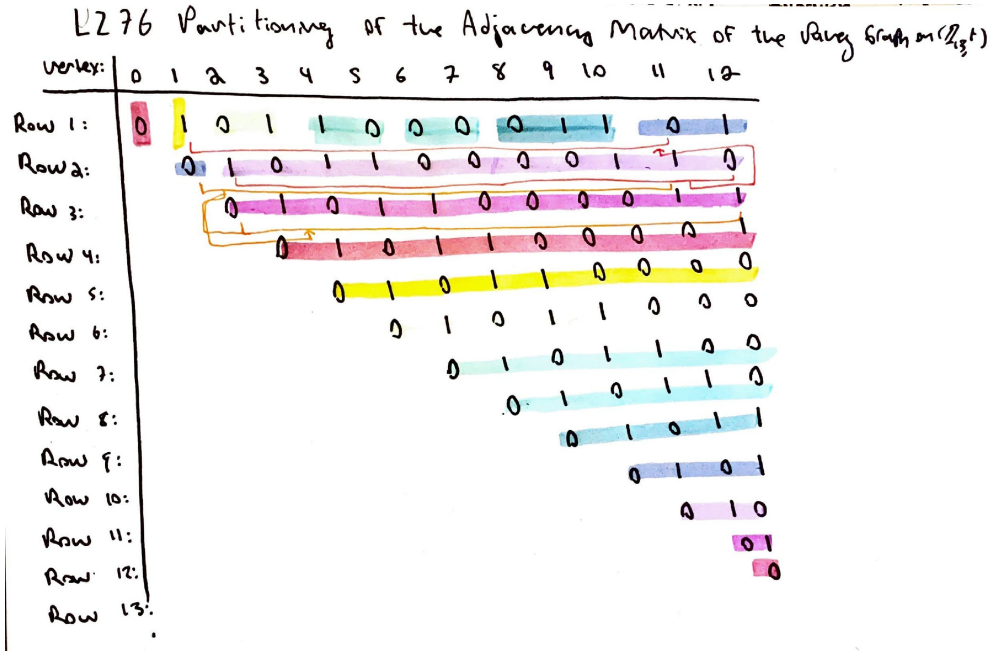 L276 Partitioning of the Adjacency Matrix of the Paley Graph on (Z13,+)
vertex: 0 1 2 3 4 5 6 7 8 9 10 11 12
Row 1: 0 1 0 1 1 0 0 0 0 1 1 0 1
Row 2: 0 1 0 1 1 0 0 0 0 1 1 0
Row 3: 0 1 0 1 1 0 0 0 0 1 1
Row 4: 0 1 0 1 1 0 0 0 0 1
Row 5: 0 1 0 1 1 0 0 0 0
Row 6: 0 1 0 1 1 0 0 0
Row 7: 0 1 0 1 1 0 0
Row 8: 0 1 0 1 1 0
Row 9: 0 1 0 1 1
Row 10: 0 1 0 1
Row 11: 0 1 0
Row 12: 0 1
Row 13: 0